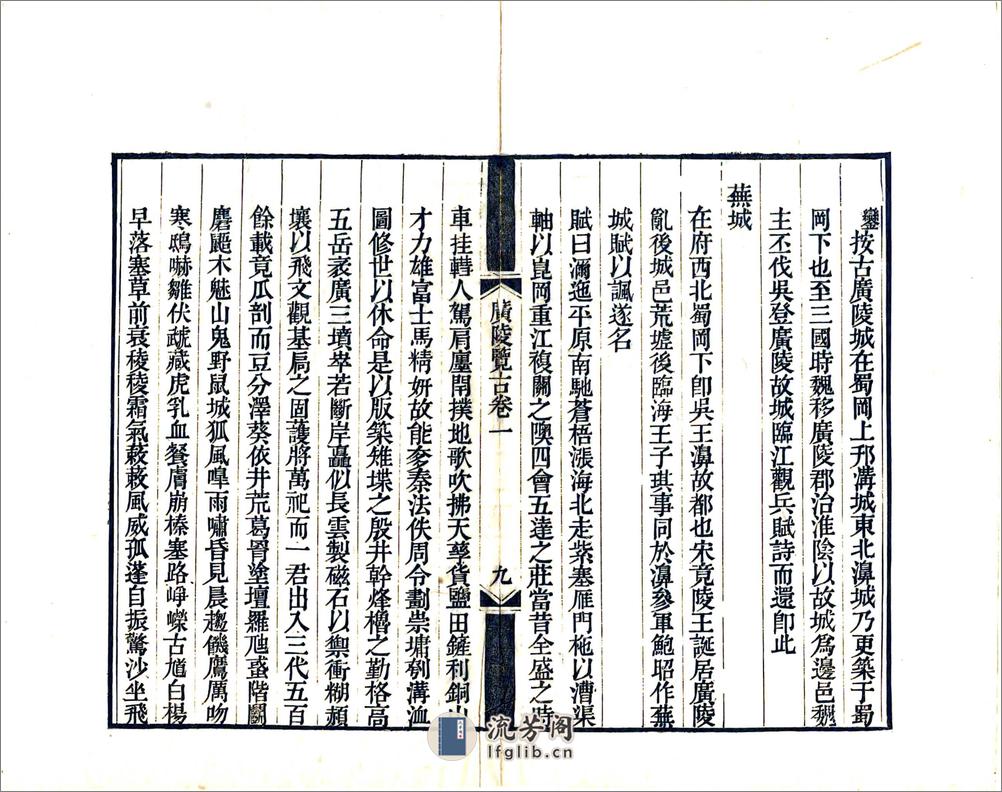 鑾按古廣陵城在蜀岡上邗溝城東北濞城乃更築于蜀
岡下也至三國時魏移廣陵郡治淮陰以故城爲邊邑魏
主丕伐吳登廣陵故城臨江觀兵賦詩而還卽此
蕪城
在府西北蜀岡下卽吳王濞故都也宋竟陵王誕居廣陵
亂後城邑荒墟後臨海王子頊事同於濞參軍鮑昭作蕪
城賦以諷遂名
賦曰瀰迤平原南馳蒼梧漲海北走紫塞雁門柂以漕渠
軸以崑岡重江複關之隩四會五達之莊當昔全盛之時
廣陵覽古卷一
九
車挂轊人駕肩廛閈撲地歌吹拂天孳貨鹽田鏟利銅山
才力雄富士馬精妍故能奓秦法佚周令劃崇墉刳濬洫
圖修世以休命是以版築雉堞之殷井幹烽櫓之勤格高
五岳袤廣三墳崒若斷岸矗似長雲製磁石以禦衝糊赬
壤以飛文觀基扃之固護將萬祀而一君出入三代五百
餘載竟瓜剖而豆分澤葵依井荒葛罥塗壇羅虺蜮階鬭
麏鼯木魅山鬼野鼠城狐風嘷雨嘯昏見晨趨饑鷹厲吻
寒鴟嚇雛伏虣藏虎乳血餐膚崩榛塞路崢嶸古馗白楊
早落塞草前衰稜稜霜氣蔌蔌風威孤蓬自振驚沙坐飛
流芳阁
lfglib.cn